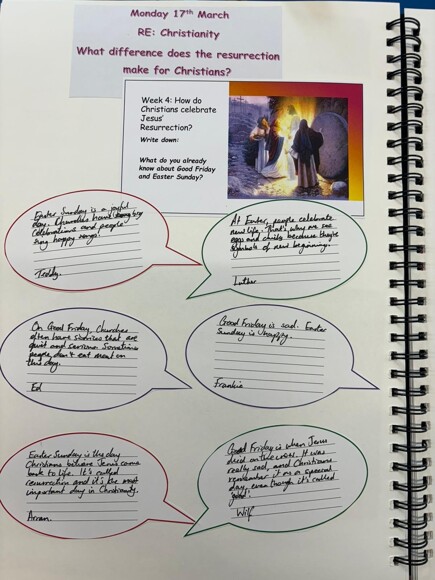 Monday 17th March
RE: Christianity
What difference does the resurrection
make for Christians?
Week 4: How do
Christians celebrate
Jesus'
Resurrection?
Write down:
What do you already
know about Good Friday
and Easter Sunday?
Easter Sunday is a joyful
day. Churches have big
celebrations and people
sing happy songs!
Teddy.
At Easter, people celebrate
new life. That's why we see
eggs and chicks because they're
symbols of new beginning.
Luther
On Good Friday, churches
often have services that are
quiet and serious. Sometimes
people don't eat meat on
this day.
Ed
Good Friday is sad. Easter
Sunday is happy.
Frankie
Easter Sunday is the day
Christians believe Jesus came
back to life. It's called
resurrection and it's the most
important day in Christianity.
Arran.
Good Friday is when Jesus
died on the cross. It was
really sad, and Christians
remember it as a special
day, even though it's called
'good'.
Wilf